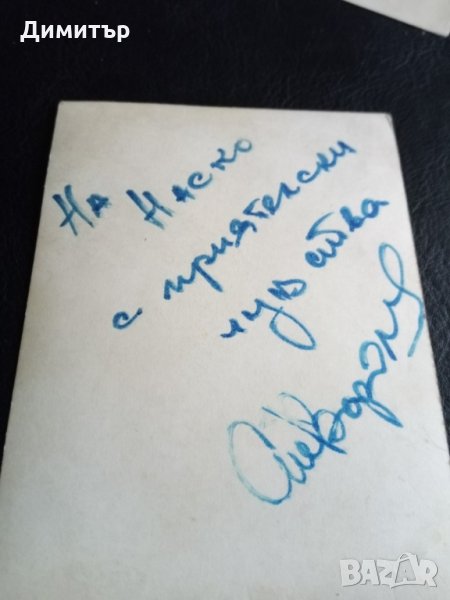 Димитър
На Наско
с приятелски
чувства
BAZAR